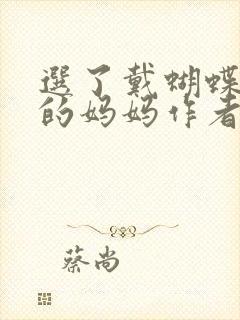 選了戴蝴蝶
的妈妈作者
蔡尚